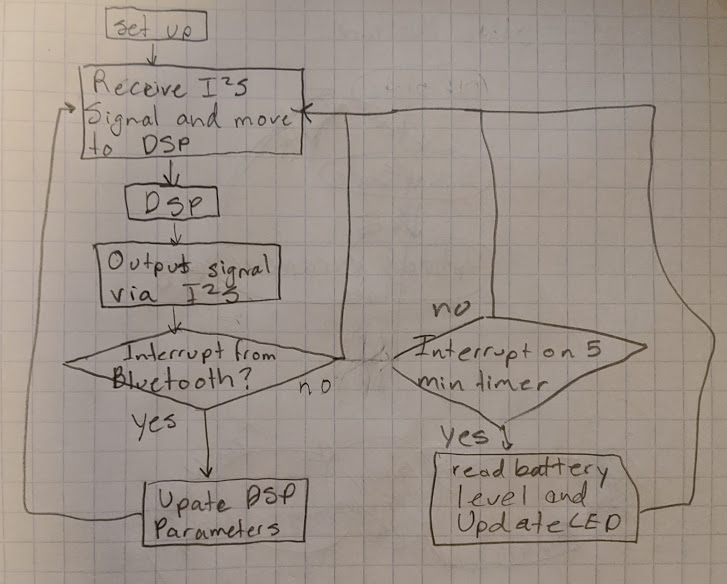 set up
Receive I²S
Signal and move
to DSP
DSP
Output signal
via I²S
Interrupt from
Bluetooth?
no
yes
Upate DSP
Parameters
no
Interrupt on 5
min timer
yes
read battery
level and
Update LED